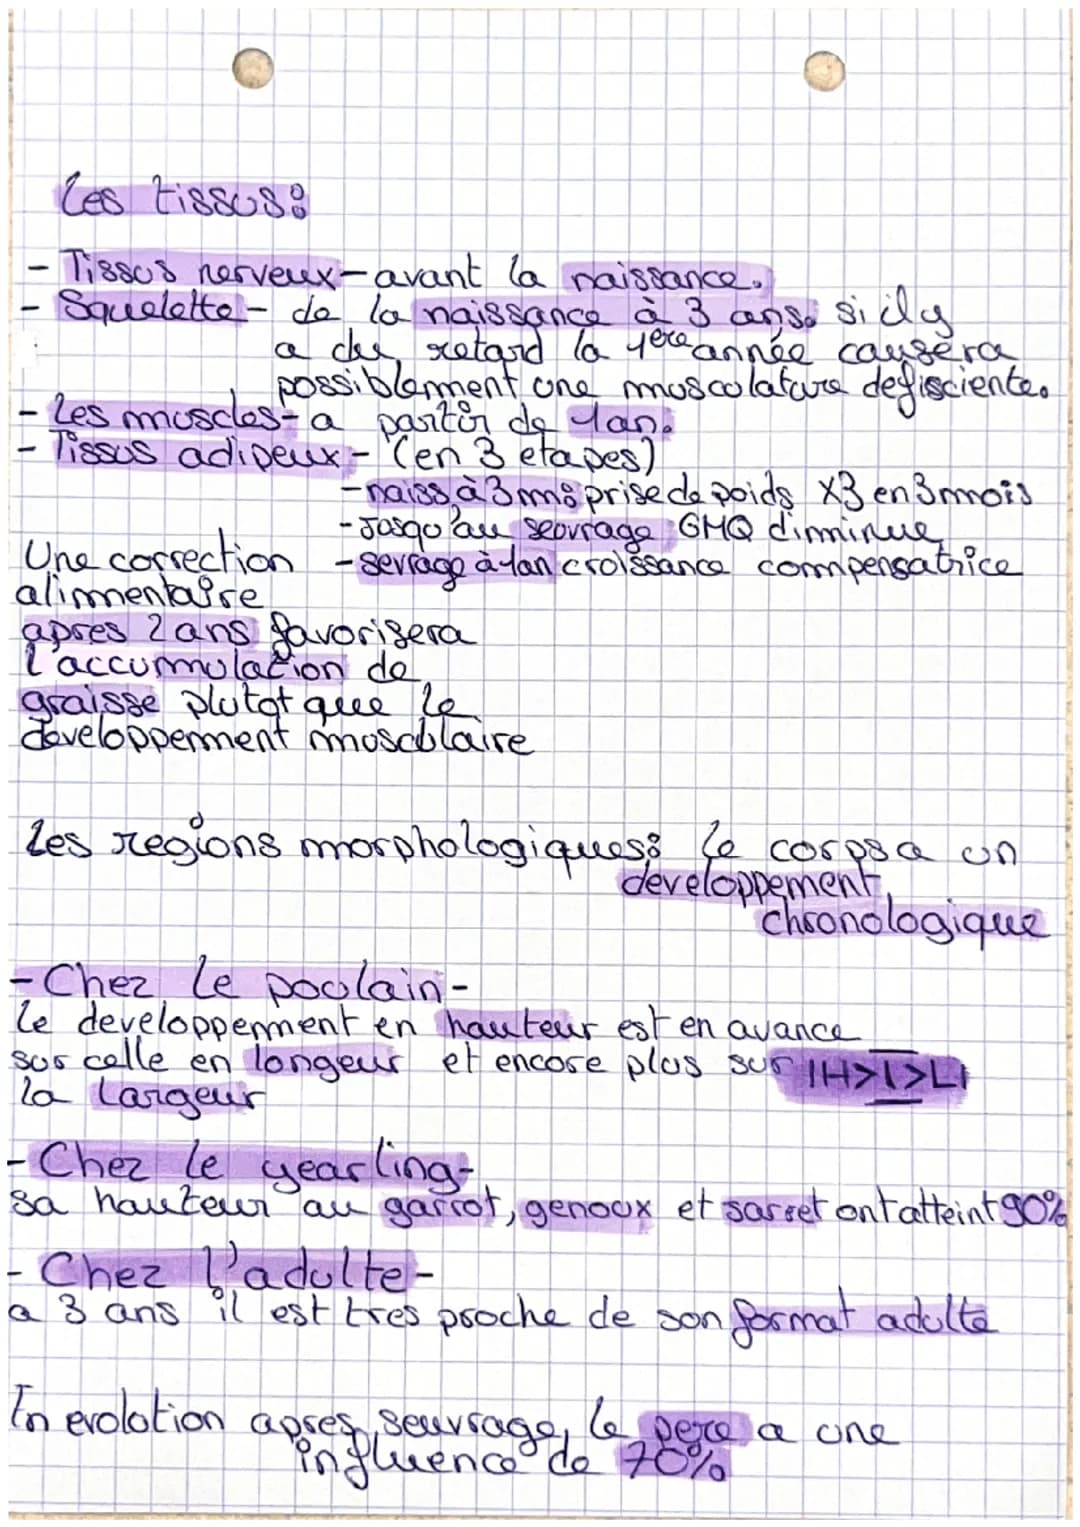 Les tissus:
- Tissus nerveux - avant la naissance.
- Squelette - de la naissance à 3 ans. si il y
a du retard la 1ère année causera
possiblement une musculature defisciente.
- Les muscles - a partir de 1an.
- Tissus adipeux - (en 3 etapes)
- naiss à 3m: prise de poids X3 en 3 mois
- Jusqu'au seuvrage GMQ diminue
- sevrage à 1an croissance compensatrice
Une correction
alimentaire
apres 2 ans favorisera
l'accumulation de
graisse plutot que le
developpement musculaire
Les regions morphologiques: Le corps a un
developpement
chronologique
- Chez le poulain -
Le developpement en hauteur est en avance
sur celle en longeur et encore plus sur
la largeur
|H>l>L|
- Chez le yearling -
sa hauteur au garrot, genoux et jarret ont atteint 90%
- Chez l'adulte -
a 3 ans il est tres proche de son format adulte
En evolution apres seuvrage, le pere a une
influence de 70%